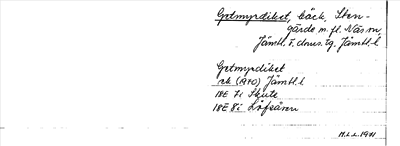 Getmyrdiket, bäck, Sten-
gärde m.fl. Näs sn,
Jämtl. s. dnus. tg. Jämtl. l
Getmyrdiket
rk (1970) Jämtl. l
18E 7i Skute
18E 8i Löfsåsen
1971